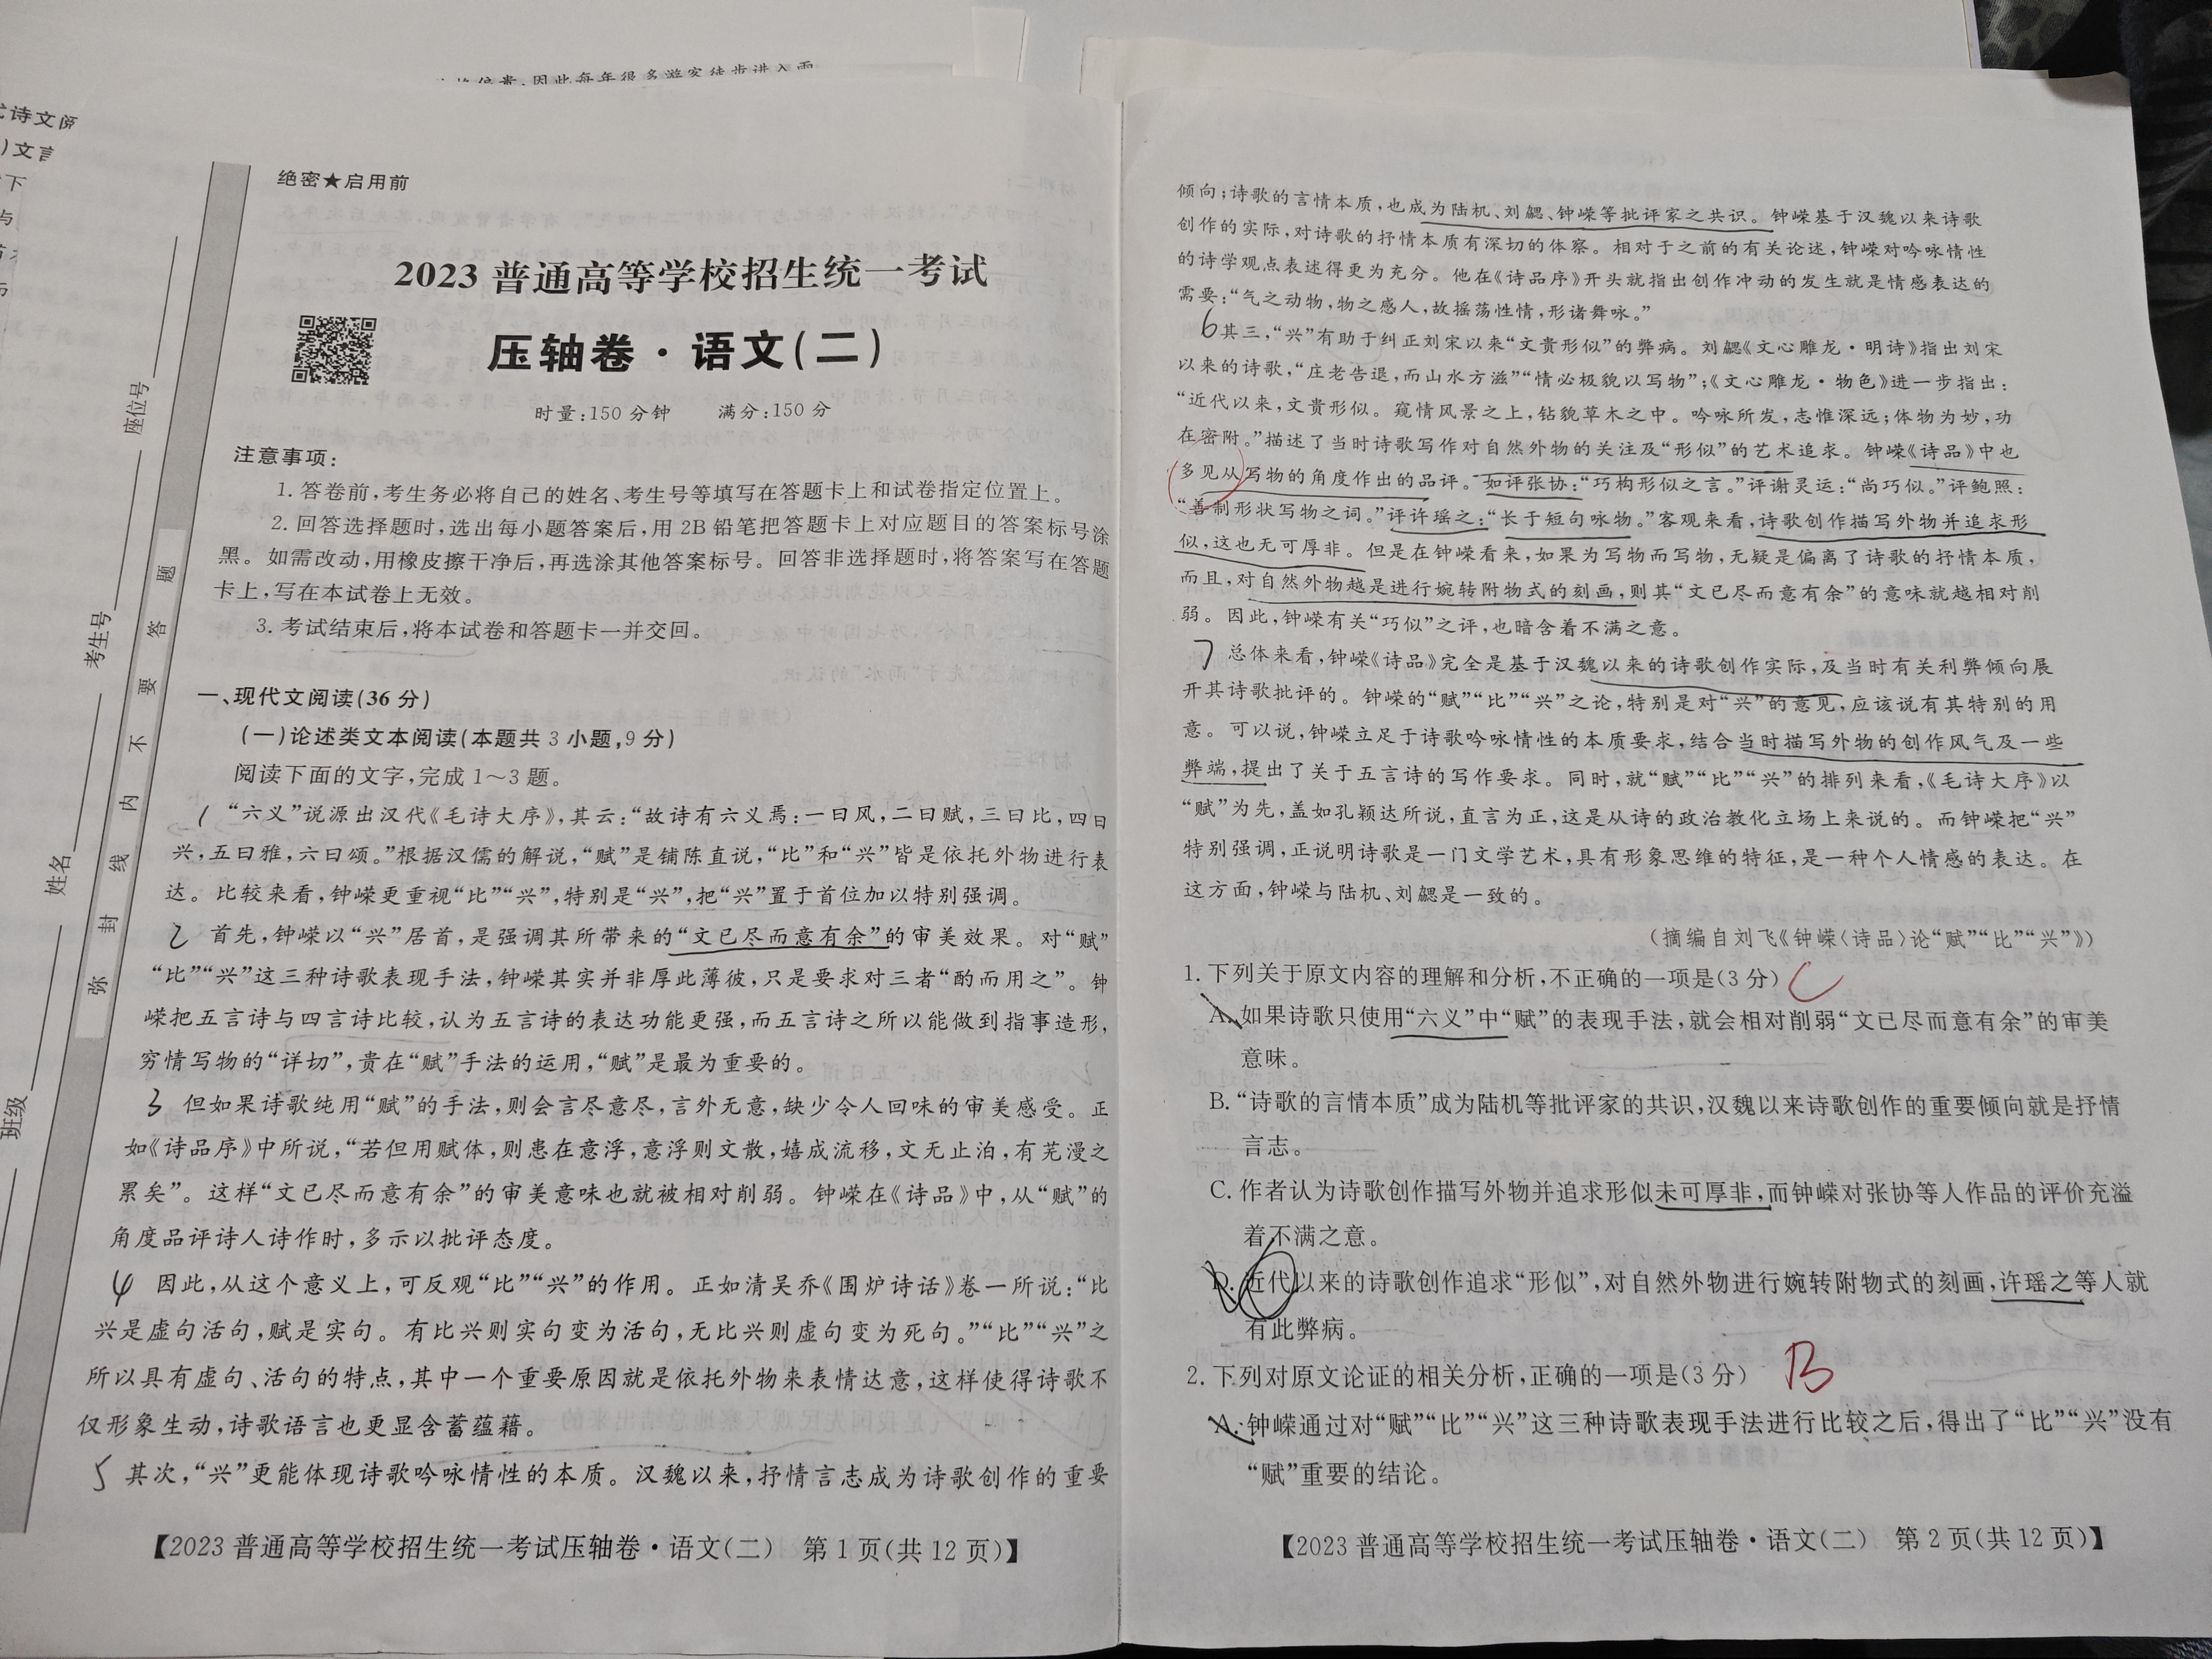 绝密★启用前
2023 普通高等学校招生统一考试
压轴卷·语文(二)
时量:150 分钟 满分:150 分
注意事项:
1. 答卷前,考生务必将自己的姓名、考生号等填写在答题卡上和试卷指定位置上。
2. 回答选择题时,选出每小题答案后,用 2B 铅笔把答题卡上对应题目的答案标号涂
黑。如需改动,用橡皮擦干净后,再选涂其他答案标号。回答非选择题时,将答案写在答题
卡上,写在本试卷上无效。
3. 考试结束后,将本试卷和答题卡一并交回。
一、现代文阅读(36 分)
(一)论述类文本阅读(本题共 3 小题,9 分)
阅读下面的文字,完成 1～3 题。
1 “六义”说源出汉代《毛诗大序》,其云:“故诗有六义焉:一曰风,二曰赋,三曰比,四曰
兴,五曰雅,六曰颂。”根据汉儒的解说,“赋”是铺陈直说,“比”和“兴”皆是依托外物进行表
达。比较来看,钟嵘更重视“比”“兴”,特别是“兴”,把“兴”置于首位加以特别强调。
2 首先,钟嵘以“兴”居首,是强调其所带来的“文已尽而意有余”的审美效果。对“赋”
“比”“兴”这三种诗歌表现手法,钟嵘其实并非厚此薄彼,只是要求对三者“酌而用之”。钟
嵘把五言诗与四言诗比较,认为五言诗的表达功能更强,而五言诗之所以能做到指事造形,
穷情写物的“详切”,贵在“赋”手法的运用,“赋”是最为重要的。
3 但如果诗歌纯用“赋”的手法,则会言尽意尽,言外无意,缺少令人回味的审美感受。正
如《诗品序》中所说,“若但用赋体,则患在意浮,意浮则文散,嬉成流移,文无止泊,有芜漫之
累矣”。这样“文已尽而意有余”的审美意味也就被相对削弱。钟嵘在《诗品》中,从“赋”的
角度品评诗人诗作时,多示以批评态度。
4 因此,从这个意义上,可反观“比”“兴”的作用。正如清吴乔《围炉诗话》卷一所说:“比
兴是虚句活句,赋是实句。有比兴则实句变为活句,无比兴则虚句变为死句。”“比”“兴”之
所以具有虚句、活句的特点,其中一个重要原因就是依托外物来表情达意,这样使得诗歌不
仅形象生动,诗歌语言也更显含蓄蕴藉。
5 其次,“兴”更能体现诗歌吟咏情性的本质。汉魏以来,抒情言志成为诗歌创作的重要
【2023 普通高等学校招生统一考试压轴卷·语文(二) 第 1 页(共 12 页)】
座位号
考生号
姓名
班级
弥 封 线 内 不 要 答 题
倾向;诗歌的言情本质,也成为陆机、刘勰、钟嵘等批评家之共识。钟嵘基于汉魏以来诗歌
创作的实际,对诗歌的抒情本质有深切的体察。相对于之前的有关论述,钟嵘对吟咏情性
的诗学观点表述得更为充分。他在《诗品序》开头就指出创作冲动的发生就是情感表达的
需要:“气之动物,物之感人,故摇荡性情,形诸舞咏。”
6 其三,“兴”有助于纠正刘宋以来“文贵形似”的弊病。刘勰《文心雕龙·明诗》指出刘宋
以来的诗歌,“庄老告退,而山水方滋”“情必极貌以写物”;《文心雕龙·物色》进一步指出:
“近代以来,文贵形似。窥情风景之上,钻貌草木之中。吟咏所发,志惟深远;体物为妙,功
在密附。”描述了当时诗歌写作对自然外物的关注及“形似”的艺术追求。钟嵘《诗品》中也
多见从写物的角度作出的品评。如评张协:“巧构形似之言。”评谢灵运:“尚巧似。”评鲍照:
“善制形状写物之词。”评许瑶之:“长于短句咏物。”客观来看,诗歌创作描写外物并追求形
似,这也无可厚非。但是在钟嵘看来,如果为写物而写物,无疑是偏离了诗歌的抒情本质,
而且,对自然外物越是进行婉转附物式的刻画,则其“文已尽而意有余”的意味就越相对削
弱。因此,钟嵘有关“巧似”之评,也暗含着不满之意。
7 总体来看,钟嵘《诗品》完全是基于汉魏以来的诗歌创作实际,及当时有关利弊倾向展
开其诗歌批评的。钟嵘的“赋”“比”“兴”之论,特别是对“兴”的意见,应该说有其特别的用
意。可以说,钟嵘立足于诗歌吟咏情性的本质要求,结合当时描写外物的创作风气及一些
弊端,提出了关于五言诗的写作要求。同时,就“赋”“比”“兴”的排列来看,《毛诗大序》以
“赋”为先,盖如孔颖达所说,直言为正,这是从诗的政治教化立场上来说的。而钟嵘把“兴”
特别强调,正说明诗歌是一门文学艺术,具有形象思维的特征,是一种个人情感的表达。在
这方面,钟嵘与陆机、刘勰是一致的。
(摘编自刘飞《钟嵘〈诗品〉论“赋”“比”“兴”》)
1. 下列关于原文内容的理解和分析,不正确的一项是(3 分) C
A. 如果诗歌只使用“六义”中“赋”的表现手法,就会相对削弱“文已尽而意有余”的审美
意味。
B. “诗歌的言情本质”成为陆机等批评家的共识,汉魏以来诗歌创作的重要倾向就是抒情
言志。
C. 作者认为诗歌创作描写外物并追求形似未可厚非,而钟嵘对张协等人作品的评价充溢
着不满之意。
D. 近代以来的诗歌创作追求“形似”,对自然外物进行婉转附物式的刻画,许瑶之等人就
有此弊病。
2. 下列对原文论证的相关分析,正确的一项是(3 分) B
A. 钟嵘通过对“赋”“比”“兴”这三种诗歌表现手法进行比较之后,得出了“比”“兴”没有
“赋”重要的结论。
【2023 普通高等学校招生统一考试压轴卷·语文(二) 第 2 页(共 12 页)】